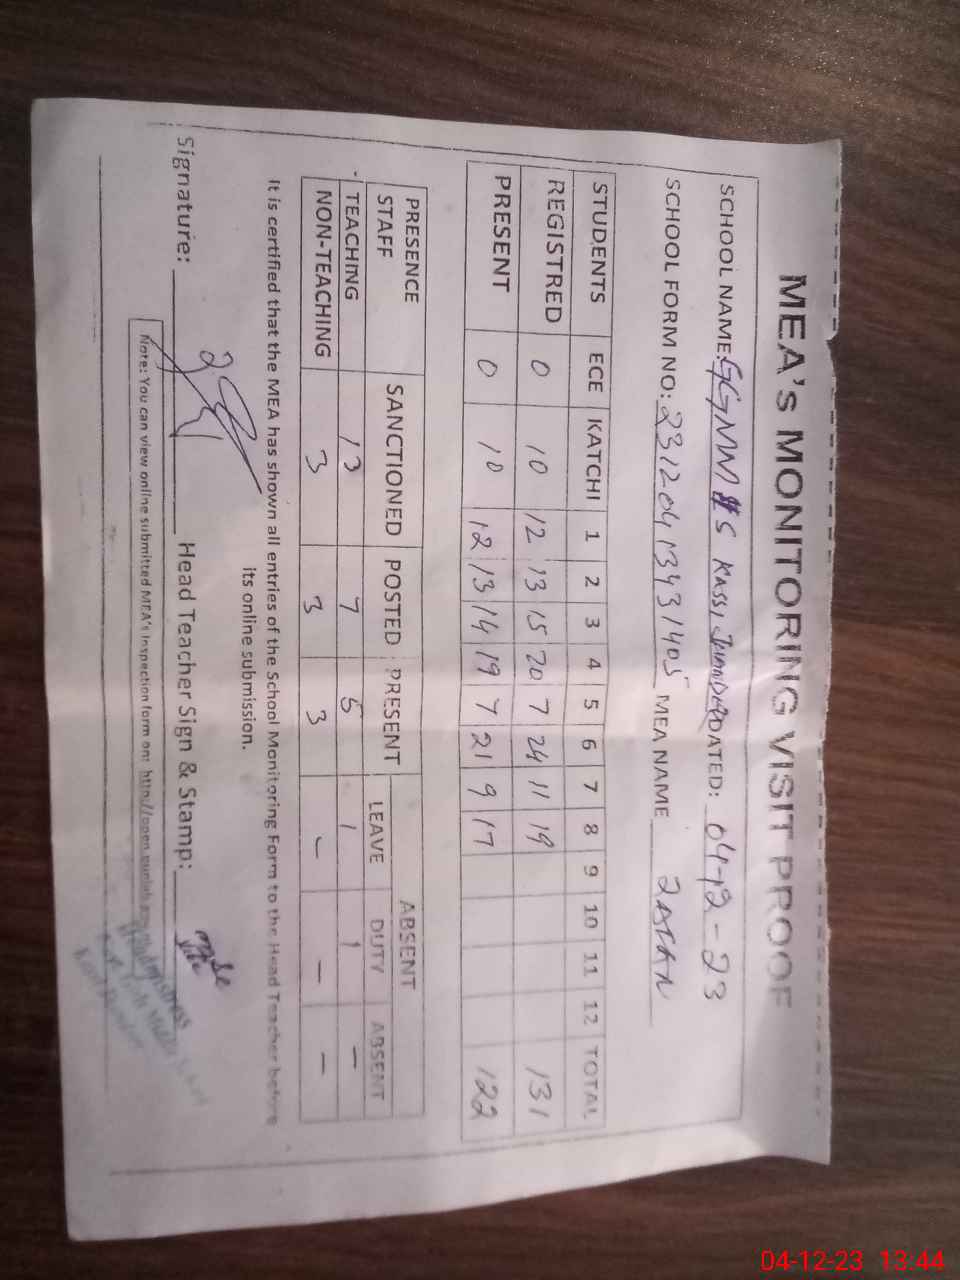 MEA's MONITORING VISIT PROOF
SCHOOL NAME: GGMMS KASSI DATED: 04-12-23
SCHOOL FORM NO: 23120413431405 MEA NAME ZAFAR
STUDENTS ECE KATCHI 1 2 3 4 5 6 7 8 9 10 11 12 TOTAL
REGISTRED 0 10 12 13 15 20 7 24 11 19 131
PRESENT 0 10 12 13 14 19 7 21 9 17 122
PRESENCE STAFF SANCTIONED POSTED PRESENT ABSENT
LEAVE DUTY ABSENT
TEACHING 13 7 5 1 1 -
NON-TEACHING 3 3 3 - - -
It is certified that the MEA has shown all entries of the School Monitoring Form to the Head Teacher before
its online submission.
Signature: Head Teacher Sign & Stamp:
Note: You can view online submitted MEA's Inspection form on: http://open.punjab.gov
Headmistress
04-12-23 13:44